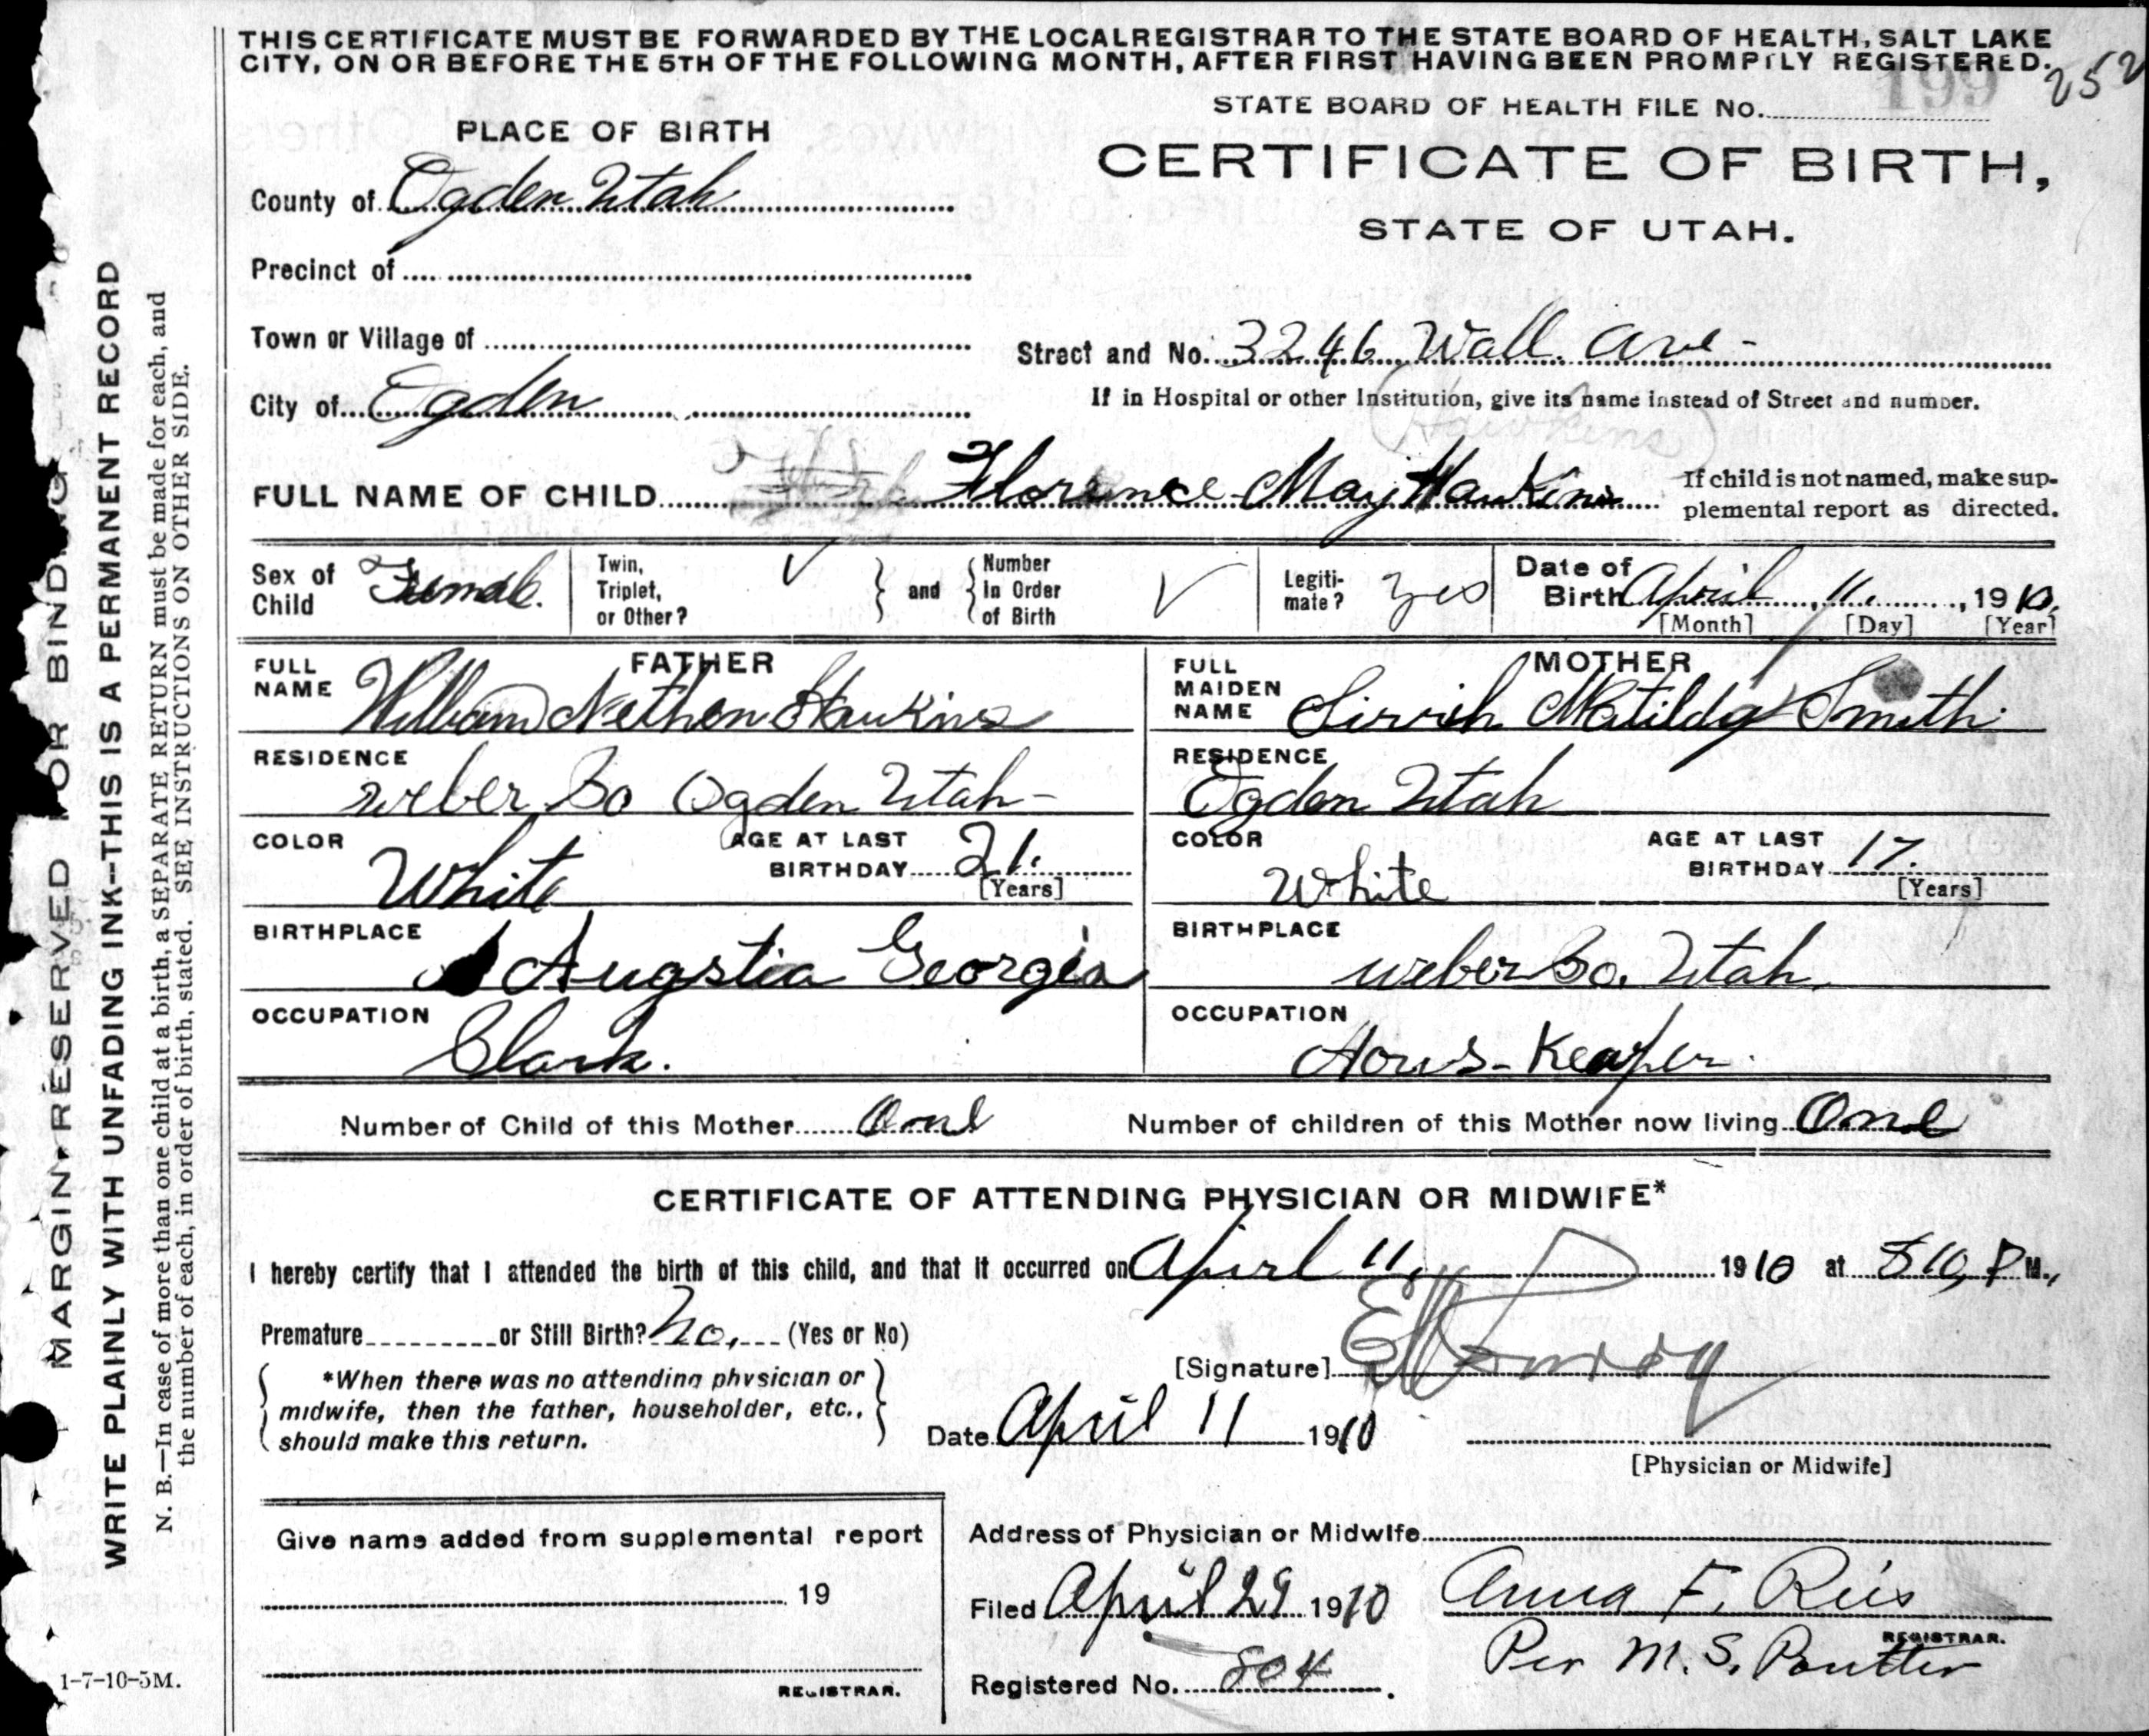 THIS CERTIFICATE MUST BE FORWARDED BY THE LOCAL REGISTRAR TO THE STATE BOARD OF HEALTH, SALT LAKE
CITY, ON OR BEFORE THE 5TH OF THE FOLLOWING MONTH, AFTER FIRST HAVING BEEN PROMPTLY REGISTERED.
252
STATE BOARD OF HEALTH FILE No. 199
PLACE OF BIRTH
CERTIFICATE OF BIRTH,
STATE OF UTAH.
County of Ogden Utah
Precinct of
Town or Village of
Street and No. 3246 Wall ave -
City of Ogden
If in Hospital or other Institution, give its name instead of Street and number.
(Hawkins)
FULL NAME OF CHILD Florence May Hawkins
If child is not named, make sup-
plemental report as directed.
Sex of Child Female.
Twin, Triplet, or Other? ✓
and
Number In Order of Birth ✓
Legiti-mate? yes
Date of Birth April 11. 1910.
[Month] [Day] [Year]
FATHER
FULL NAME William Nethen Hawkins
RESIDENCE
weber Co Ogden Utah -
COLOR White
AGE AT LAST BIRTHDAY 21.
[Years]
BIRTHPLACE
Augstia Georgia
OCCUPATION
Clark.
MOTHER
FULL MAIDEN NAME Matilda Smith
RESIDENCE
Ogden Utah
COLOR White
AGE AT LAST BIRTHDAY 17.
[Years]
BIRTHPLACE
weber Co. Utah.
OCCUPATION
Hous-Keaper
Number of Child of this Mother One
Number of children of this Mother now living One
CERTIFICATE OF ATTENDING PHYSICIAN OR MIDWIFE*
I hereby certify that I attended the birth of this child, and that it occurred on Apirl 11, 1910 at 810, P M.,
Premature or Still Birth? No. (Yes or No)
*When there was no attending physician or
midwife, then the father, householder, etc.,
should make this return.
[Signature]
Date April 11 1910
[Physician or Midwife]
Give name added from supplemental report
19
REGISTRAR.
Address of Physician or Midwife
Filed April 29 1910
Anna F. Reis
REGISTRAR.
Per M. S.
Registered No. 804.
1-7-10-5M.
MARGIN RESERVED FOR BINDING
WRITE PLAINLY WITH UNFADING INK--THIS IS A PERMANENT RECORD
N. B.—In case of more than one child at a birth, a SEPARATE RETURN must be made for each, and
the number of each, in order of birth, stated. SEE INSTRUCTIONS ON OTHER SIDE.